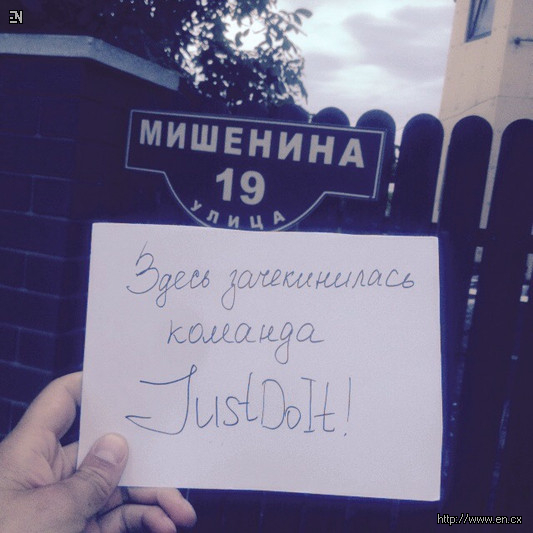 EN
МИШЕНИНА
19
УЛИЦА
Здесь зачекинилась
команда
JustDoIt!
http://www.en.cx